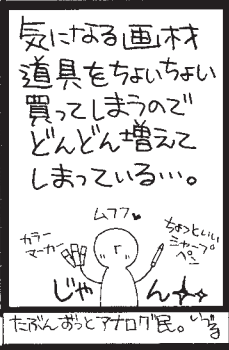 気になる画材
道具をちょいちょい
買ってしまうので
どんどん増えて
しまっている…。
ムフフ♥
カラー
マーカー
ちょっといい
シャープ
ペン
じゃん
たぶんずっとアナログ民。